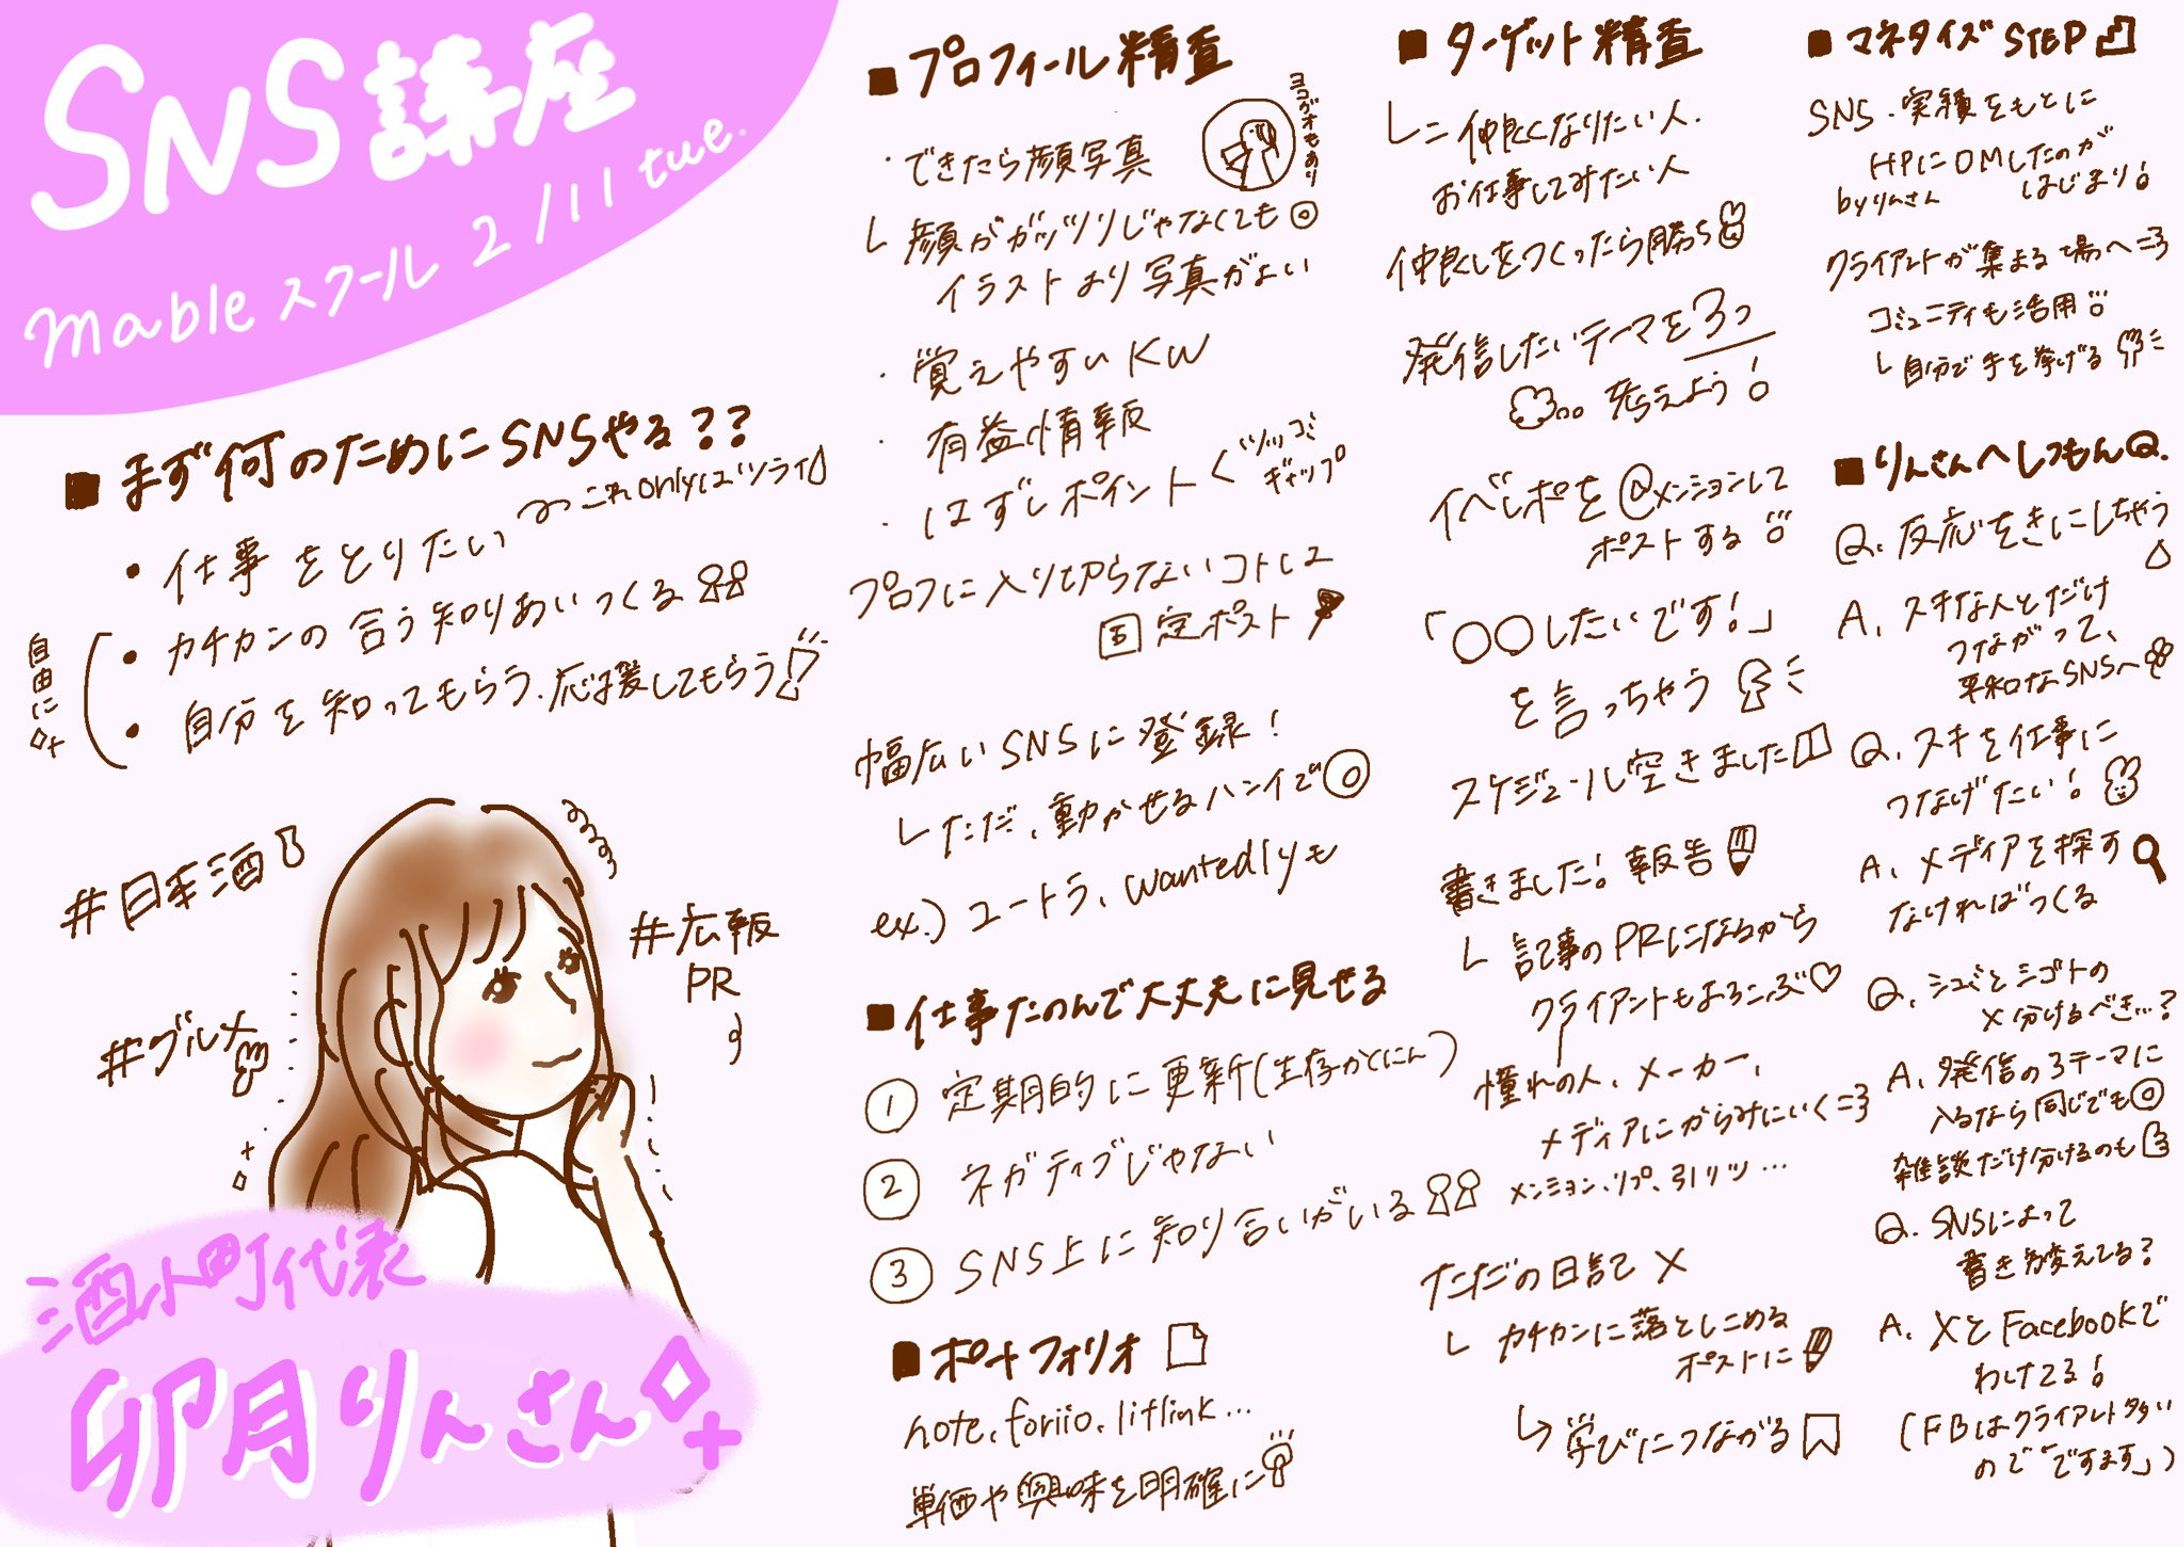 SNS講座
mableスクール 2/11 tue.
■ まず何のためにSNSやる??
・仕事をとりたい
これonlyはツライ
・カチカンの合う知りあいつくる
・自分を知ってもらう、応援してもらう
自由に
#日本酒
#グルメ
#広報
PR
酒小町代表
卯月りんさん
■ プロフィール精査
・できたら顔写真
ヨコガオもあり
└ 顔がガッツリじゃなくても◎
イラストより写真がよい
・覚えやすいKW
・有益情報
・はずしポイント<ツッコミ
ギャップ
プロフに入り切らないコトは
固定ポスト
幅広いSNSに登録!
└ ただ、動かせるハンイで◎
ex.) ユートラ、wantedlyも
■ 仕事たのんで大丈夫に見せる
① 定期的に更新(生存かくにん)
② ネガティブじゃない
③ SNS上に知り合いがいる
■ ポートフォリオ
note、foriio、litlink…
単価や興味を明確に
■ ターゲット精査
└= 仲良くなりたい人.
お仕事してみたい人
仲良しをつくったら勝ち
発信したいテーマを3つ
考えよう!
イベレポを@メンションして
ポストする
「〇〇したいです!」
を言っちゃう
スケジュール空きました
書きました!報告
└ 記事のPRになるから
クライアントもよろこぶ♡
憧れの人、メーカー、
メディアにからみにいく=3
メンション、リプ、引リツ…
ただの日記 ×
└ カチカンに落としこめる
ポストに
↳ 学びにつながる
■ マネタイズSTEP
SNS・実績をもとに
HPにDMしたのが
byりんさん はじまり!
クライアントが集まる場へ=3
コミュニティも活用
└ 自分で手を挙げる
■ りんさんへしつもんQ.
Q. 反応をきにしちゃう
A. スキな人とだけ
つながって、
平和なSNSへ
Q. スキを仕事に
つなげたい!
A. メディアを探す
なければつくる
Q. シュミとシゴトの
× 分けるべき…?
A. 発信の3テーマに
入るなら同じでも◎
雑談だけ分けるのも
Q. SNSによって
書き方変えてる?
A. XとFacebookで
わけてる!
(FBはクライアント多い
ので「ですます」)